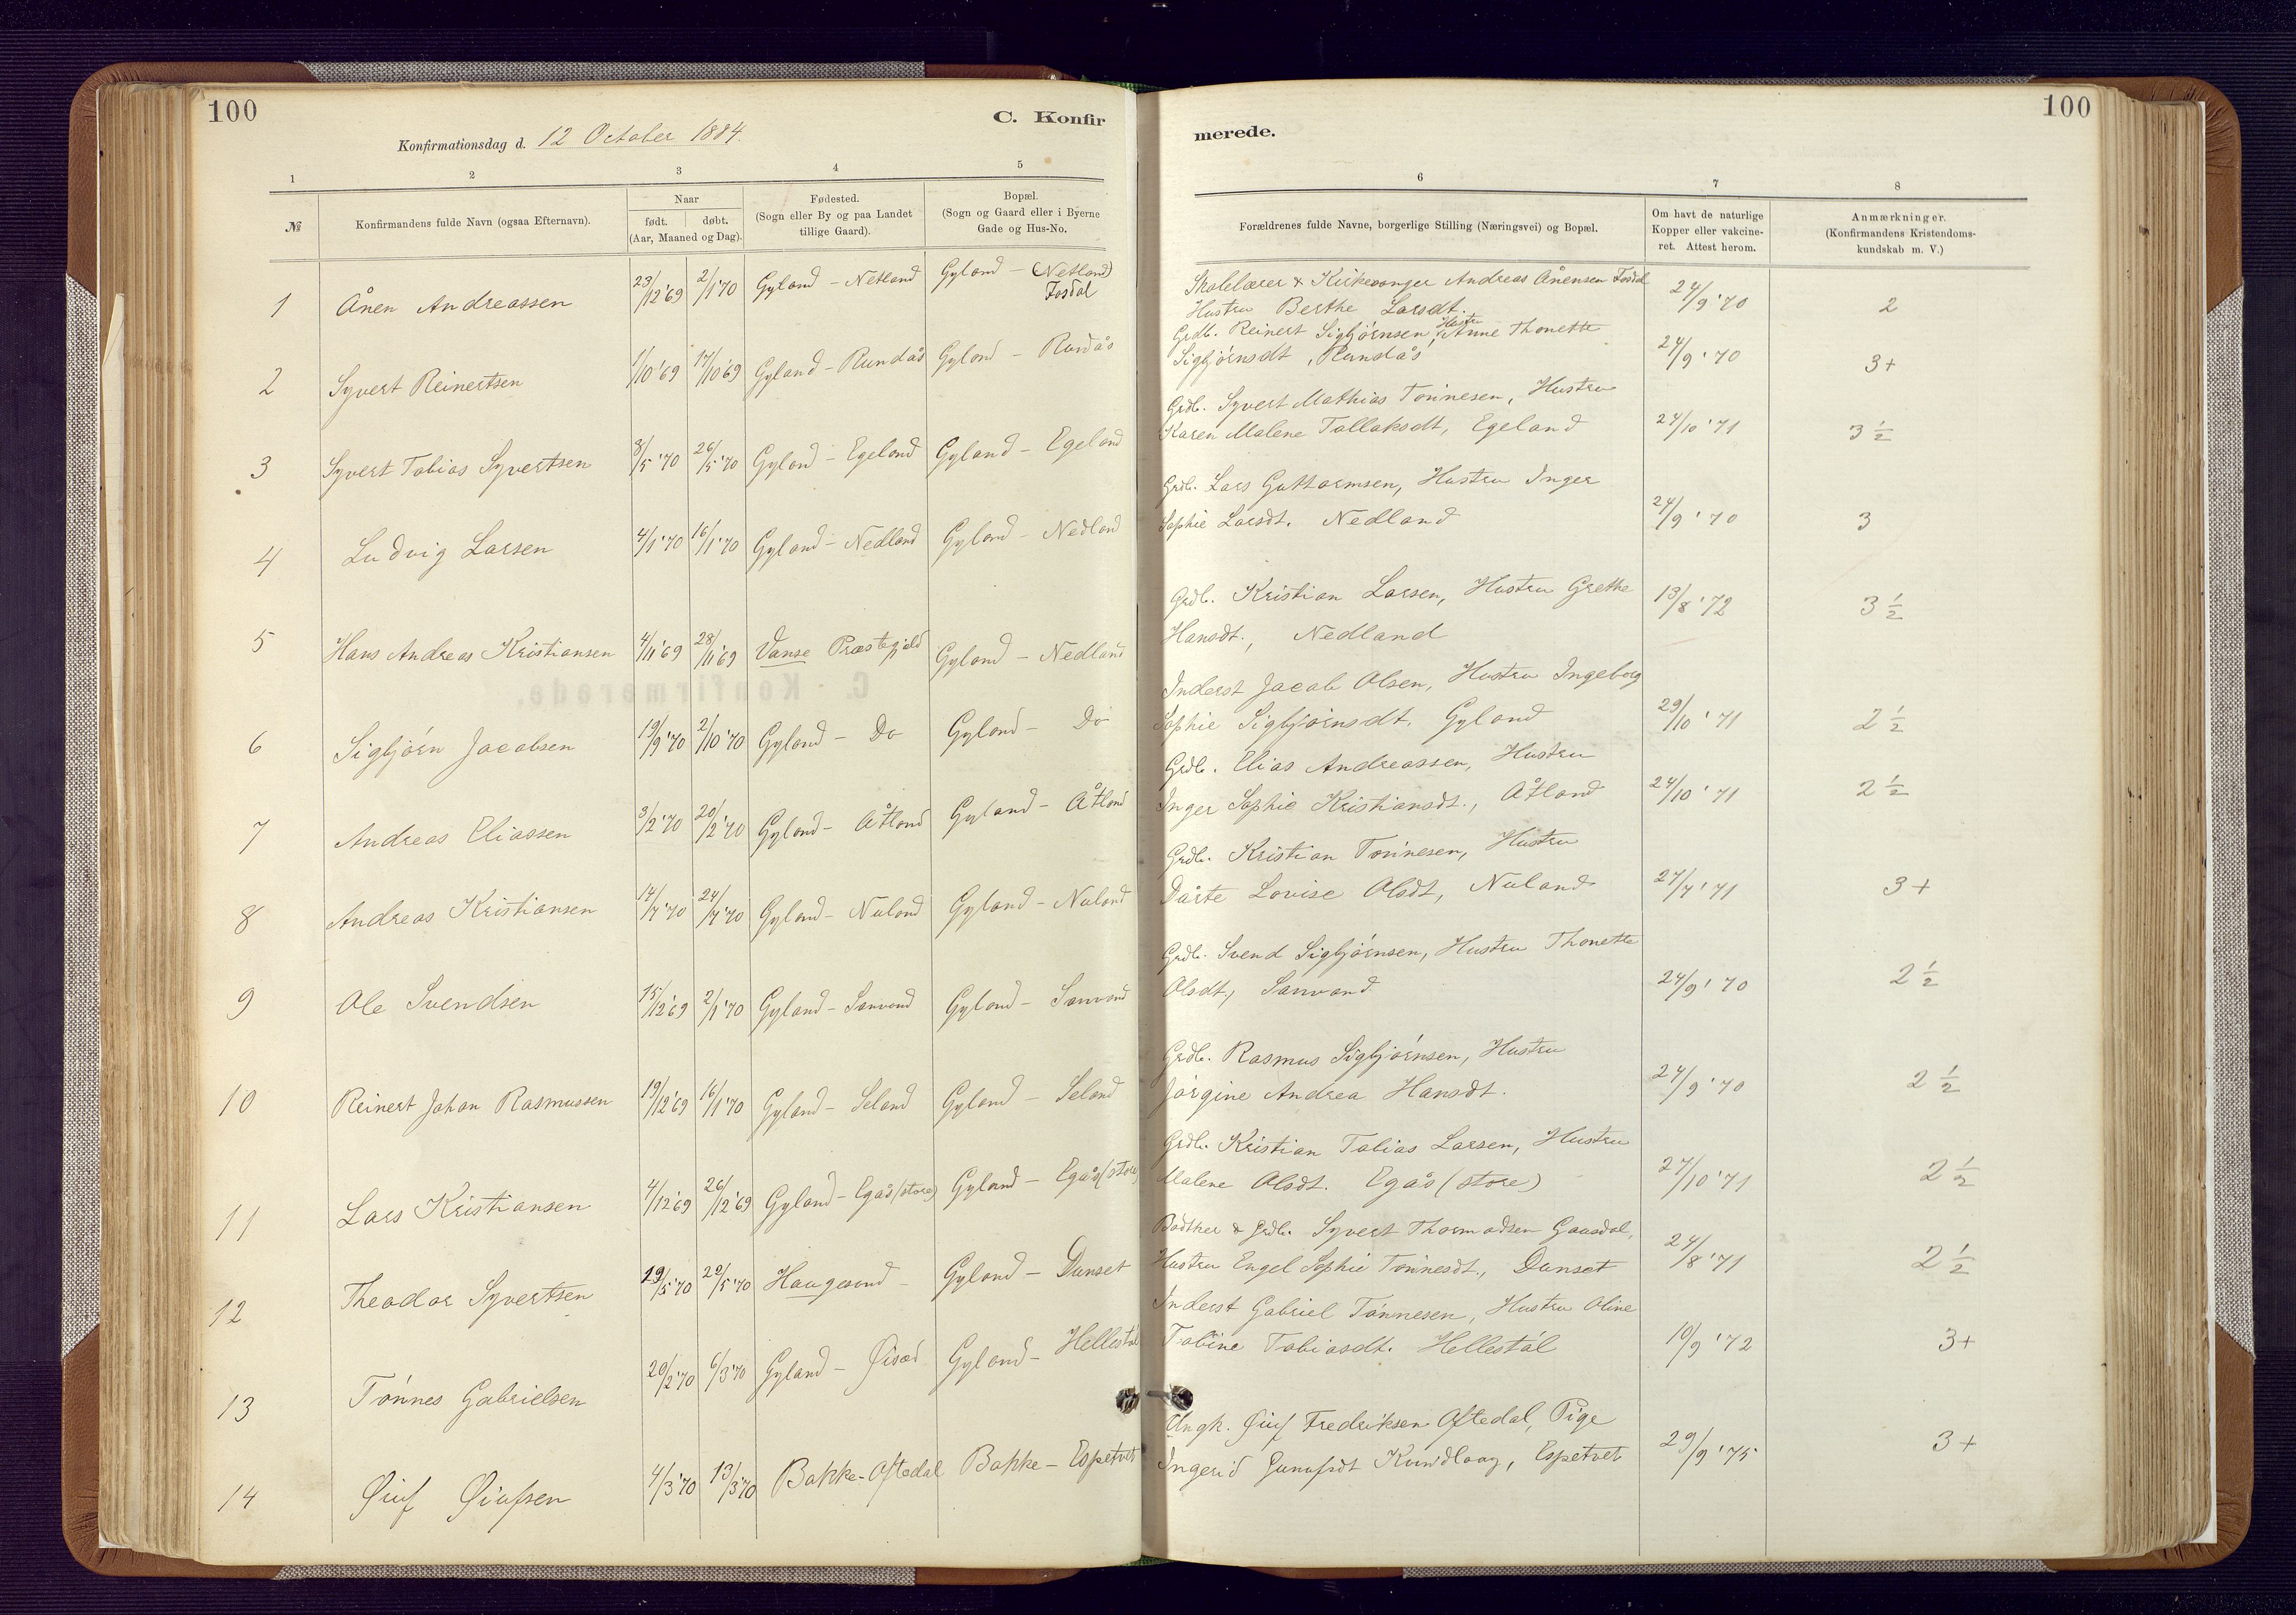 100
C. Konfir
Konfirmationsdag d. 12 October 1884.
1 2 3 4 5
№ Konfirmandens fulde Navn (ogsaa Efternavn). Naar født. døbt. (Aar, Maaned og Dag). Fødested. (Sogn eller By og paa Landet tillige Gaard). Bopæl. (Sogn og Gaard eller i Byerne Gade og Hus-No.
1 Ånen Andreassen 23/12'69 2/1'70 Gyland - Netland Gyland - (Netland) Fosdal
2 Syvert Reinertsen 1/10'69 17/10'69 Gyland - Rundås Gyland - Rundås
3 Syvert Tobias Syvertsen 8/5'70 26/5'70 Gyland - Egeland Gyland - Egeland
4 Ludvig Larsen 4/1'70 16/1'70 Gyland - Nedland Gyland - Nedland
5 Hans Andreas Kristiansen 4/11'69 28/11'69 Vanse Præstegjeld Gyland - Nedland
6 Sigbjørn Jacobsen 19/9'70 2/10'70 Gyland - Do Gyland - Do
7 Andreas Eliassen 3/2'70 20/2'70 Gyland - Åtland Gyland - Åtland
8 Andreas Kristiansen 14/7'70 24/7'70 Gyland - Nuland Gyland - Nuland
9 Ole Svendsen 15/12'69 2/1'70 Gyland - Sanvand Gyland - Sanvand
10 Reinert Johan Rasmussen 19/12'69 16/1'70 Gyland - Seland Gyland - Seland
11 Lars Kristiansen 4/12'69 26/12'69 Gyland - Egås (store) Gyland - Egås (store)
12 Theodor Syvertsen 19/5'70 22/5'70 Haugesund - Gyland - Dunset
13 Tønnes Gabrielsen 20/2'70 6/3'70 Gyland - Gyland - Hellestøl
14 Øiuf Øiufsen 4/3'70 13/3'70 Bakke - Oftedal Bakke - Espetvet
100
merede.
6 7 8
Forældrenes fulde Navne, borgerlige Stilling (Næringsvei) og Bopæl. Om havt de naturlige Kopper eller vakcineret. Attest herom. Anmærkninger. (Konfirmandens Kristendomskundskab m. V.)
Skolelærer & Kirkesanger Andreas Ånensen Fosdal
Hustru Berthe Larsdt. 24/9'70 2
Grdb. Reinert Sigbjørnsen, Hustru Anne Thonette
Sigbjørnsdt, Rundås 24/9'70 3+
Grdb. Syvert Mathias Tønnesen, Hustru
Karen Malene Tollaksdt, Egeland 24/10'71 3 1/2
Grdb. Lars Guttormsen, Hustru Inger
Sophie Larsdt. Nedland 24/9'70 3
Grdb. Kristian Larsen, Hustru Grethe
Hansdt., Nedland 13/8'72 3 1/2
Inderst Jacob Olsen, Hustru Ingeborg
Sophie Sigbjørnsdt. Gyland 29/10'71 2 1/2
Grdb. Elias Andreassen, Hustru
Inger Sophie Kristiansdt., Åtland 24/10'71 2 1/2
Grdb. Kristian Tønnesen, Hustru
Dårte Lovise Olsdt, Nuland 27/7'71 3+
Grdb. Svend Sigbjørnsen, Hustru Thonette
Olsdt, Sanvand 24/9'70 2 1/2
Grdb. Rasmus Sigbjørnsen, Hustru
Jørgine Andrea Hansdt. 24/9'70 2 1/2
Grdb. Kristian Tobias Larsen, Hustru
Malene Olsdt. Egås (store) 27/10'71 2 1/2
Bødker & Grdb. Syvert Thormodsen Gausdal,
Hustru Engel Sophie Tønnesdt., Dunset 24/8'71 2 1/2
Inderst Gabriel Tønnesen, Hustru Oline
Tobine Tobiasdt. Hellestøl 10/9'72 3+
Ungk. Øiuf Fredriksen Oftedal, Pige
Ingerid Espetvet 29/9'75 3+